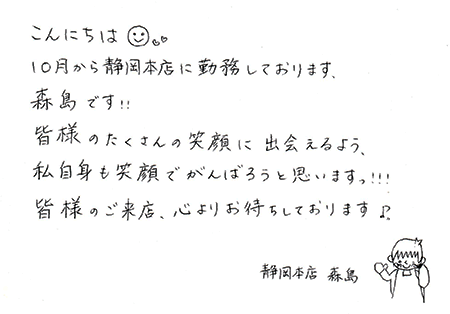 こんにちは
10月から静岡本店に勤務しております、
森島です!!
皆様のたくさんの笑顔に出会えるよう、
私自身も笑顔でがんばろうと思いますっ!!!
皆様のご来店、心よりお待ちしております♪
静岡本店 森島